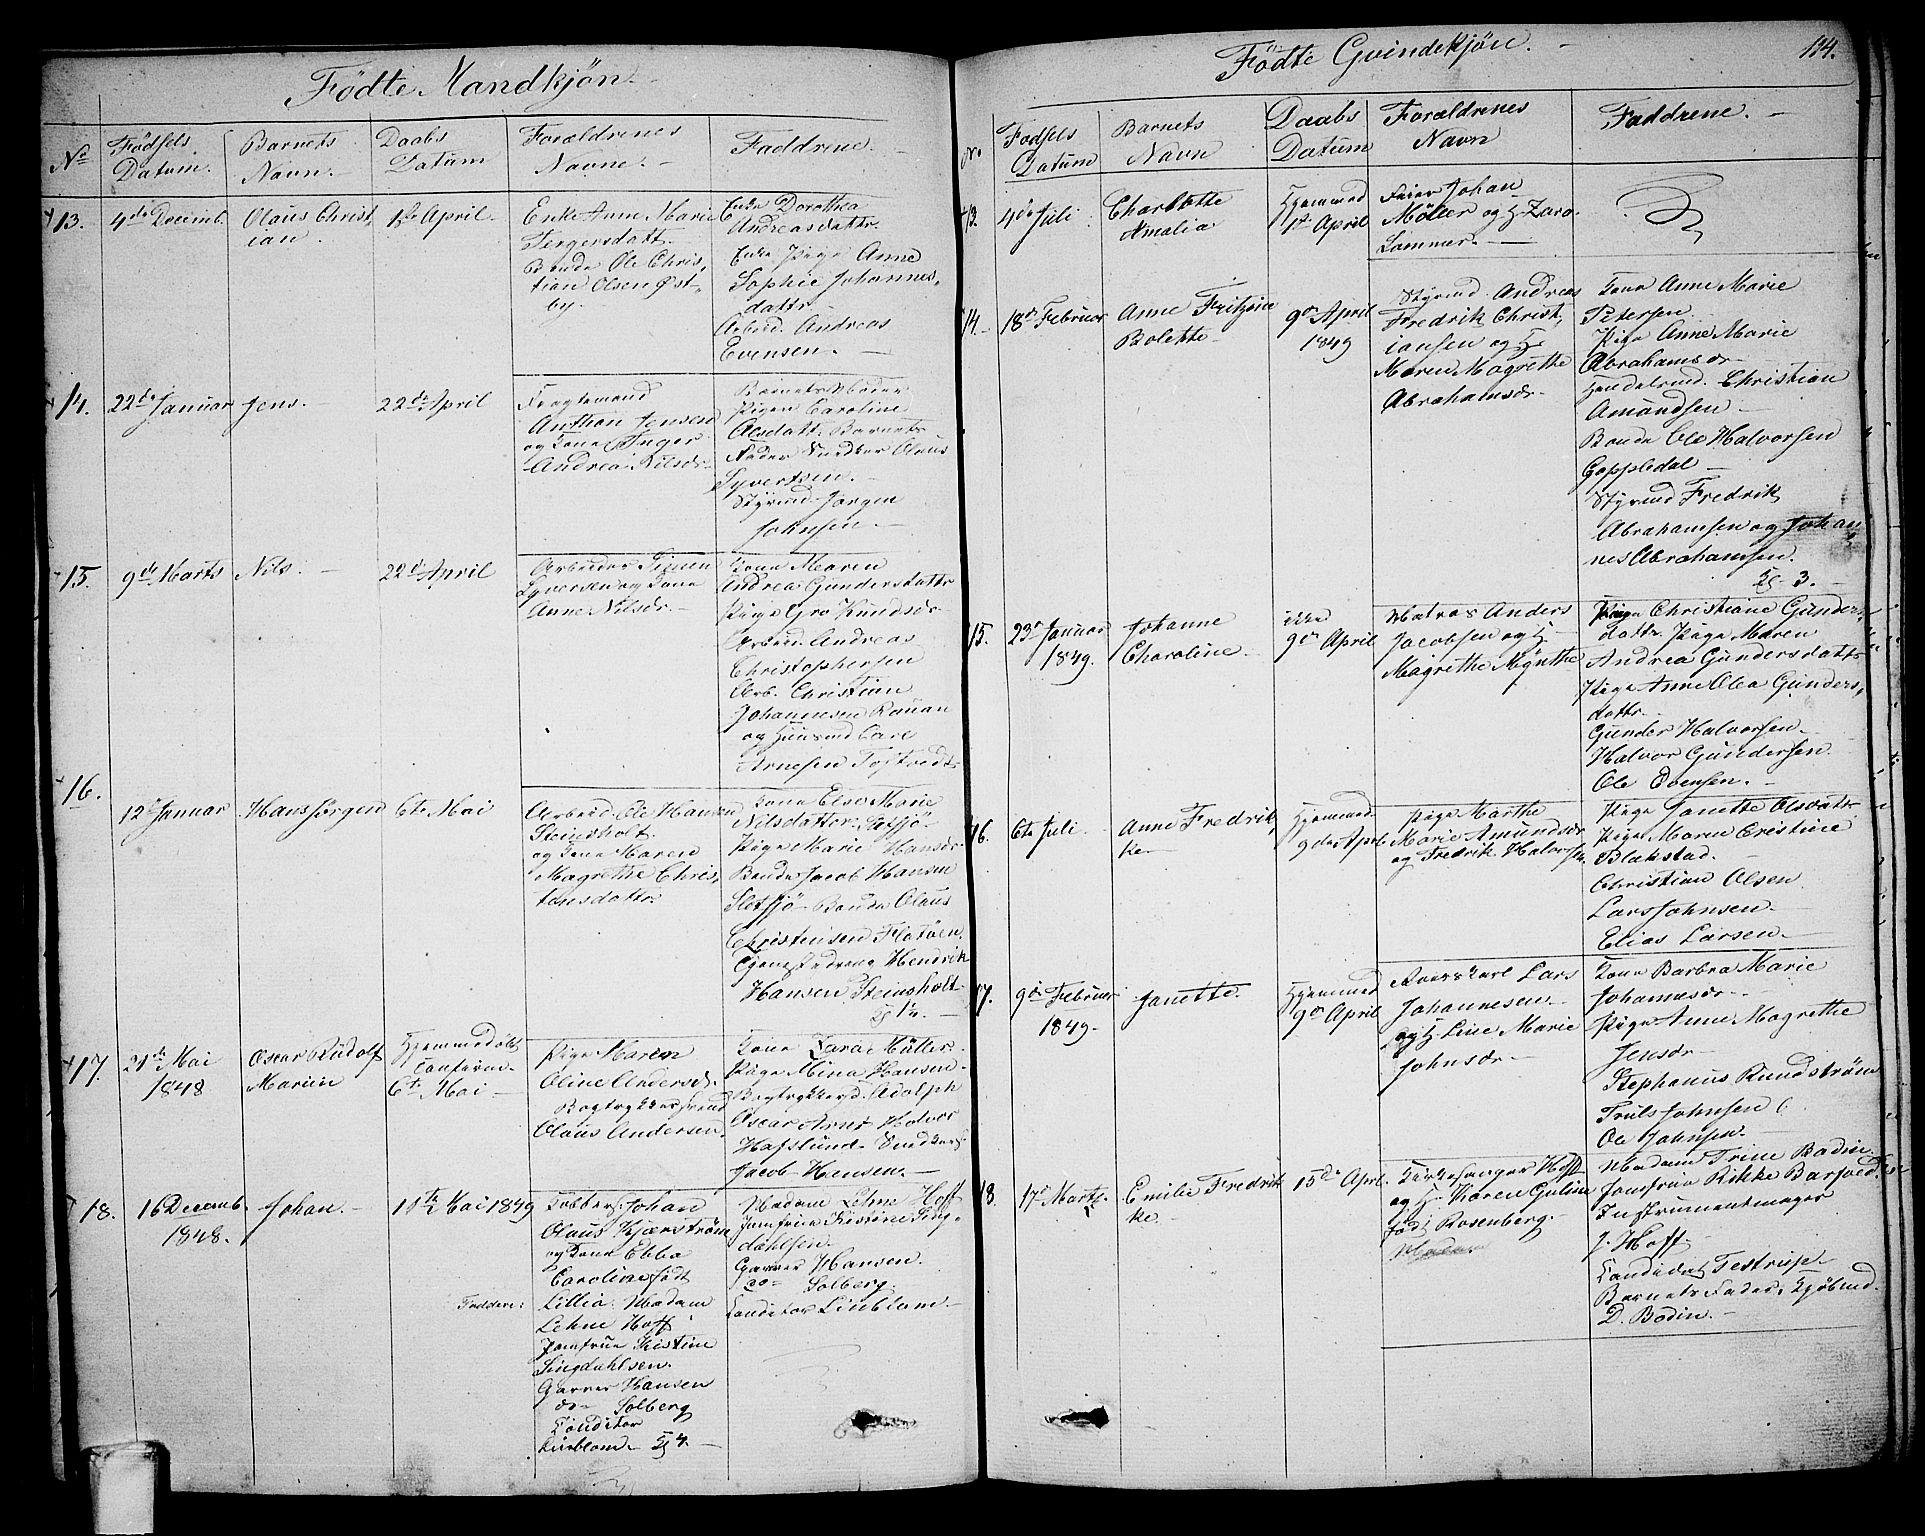 Födte Mandkjøn.
No
Födsels Datum.
Barnets Navn.
Daabs Datum
Forældrenes Navne.
Faddrene.
13.
4de Decemb.
Olaus Christ,
ian.
1ste April.
Enke Anne Marie
Bonde Ole Chris,
tian Olsen Øst-
by.
Enke Dorothea
Andreasdattr.
Pige Anne
Sophie Johannes,
dattr
Arbeid. Andreas
Evensen.
14.
22de Januar
Jens.
22de April
Fragtemand
Anthon Jensen
og Kone Inger
Andrea Nilsdr.
Barnets Moder
Pigen Caroline
Olsdatt. Barnets
Fader Snedker Olaus
Syvertsen.
Styrmd Jørgen
Johnsen.
15.
9de Marts
Nils.
22de April
Arbeider
Syversen og Kone
Anne Nilsdr.
Kone Maren
Andrea Gundersdattr
Pige Gro Knudsdr
Arbeid. Andreas
Christophersen
Arb. Christian
Johannesen
og Huusmd Carl
Arnesen
16.
12te Januar
Hans Jörgen
6te Mai
Arbeid. Ole Hansen
Steensholt
og Kone Maren
Magrethe Chris,
tensdattr.
Kone Else Marie
Nilsdatter
Pige Marie Hansdr
Bonde Jacob Hansen
Bonde Olaus
Christensen
Hendrik
Hansen Steinsholt
17.
21de Mai
1848
Oscar Rudolf
Marin
Hjemmedöbt
6te Mai
Pige Maren
Oline Andersdr.
Bogtrykkersvend
Olaus Andersen.
Kone Zara Müller
Pige Mina Hansen.
Bogtrykkersvd. Adolph
Oscar Arnt Halvor
Hafslund. Snedkers.
Jacob Hansen.
18.
16 Decemb.
1848.
Johan.
11te Mai 1849
Johan
Olaus Kjærström
og Kone Ebba
Caroline födt
Lillia. Madam
Faddere:
Lehne Hoff
Jomfrue Kistine
Singdahlsen.
Garver Hansen
do- Solberg
Conditor
Linblom.
Madam Lehne Hoff
Jomfrue Kistine Sing,
dahlsen.
Garver Hansen.
do- Solberg.
Conditor Linblom
Födte Qvindekjön.
194.
No.
Fodsels Datum
Barnets Navn
Daabs Datum
Forældrenes Navn
Faddrene.
13.
4de Juli
Charlotte
Amalia
Hjemmed
1ste April
Feier Johan
Möller og H. Zara
Lammers.
14.
18de Februar
Anne Fritzine
Bolette
9de April
1849
Styrmd. Andreas
Fredrik Christ,
iansen og H.
Maren Magrethe
Abrahamsdr.
Kone Anne Marie
Petersen
Pige Anne Marie
Abrahamsdr
Handelsmd. Christian
Amundsen
Bonde Ole Halvorsen
Styrmd Fredrik
Abrahamsen og Johan
nes Abrahamsen.
15.
23de Januar
1849.
Johanne
Charoline.
9de April
Matros Anders
Jacobsen og H.
Magrethe Mynthe
Pige Christiane Gunders,
dattr. Pige Maren
Andrea Gundersdattr
Pige Anne Olea Gunders,
dattr.
Gunder Halvorsen.
Halvor Gundersen
Ole Evensen.
16.
6te Juli
Anne Fredrik,
ke
Hjemmed
9de April
Pige Marthe
Marie Amundsdr
og Fredrik Halvorsen.
Pige Janette Olsdattr
Pige Maren Cristine
Blakstad.
Christian Olsen
Lars Johnsen.
Elias Larsen.
17.
9de Februar
1849.
Janette.
Hjemmed
9de April
Lars
Johannesen
og H. Line Marie
Johnsdr
Kone Barbra Marie
Johannesdr.
Pige Anne Magrethe
Jensdr
Stephanus Rundström
Truls Johnsen
Ole Johnsen.
18.
17de Marts
Emilie Fredrik
ke
15de April.
Kirkesanger Hoff
og H. Karen Guline
föd Rosenberg.
Madam Trine Bodin
Jomfrue Rikke
Instrumentmager
J. Hoff.
Candidat Testrup
Barnets Fader, Kjöbmd
D. Bodin.